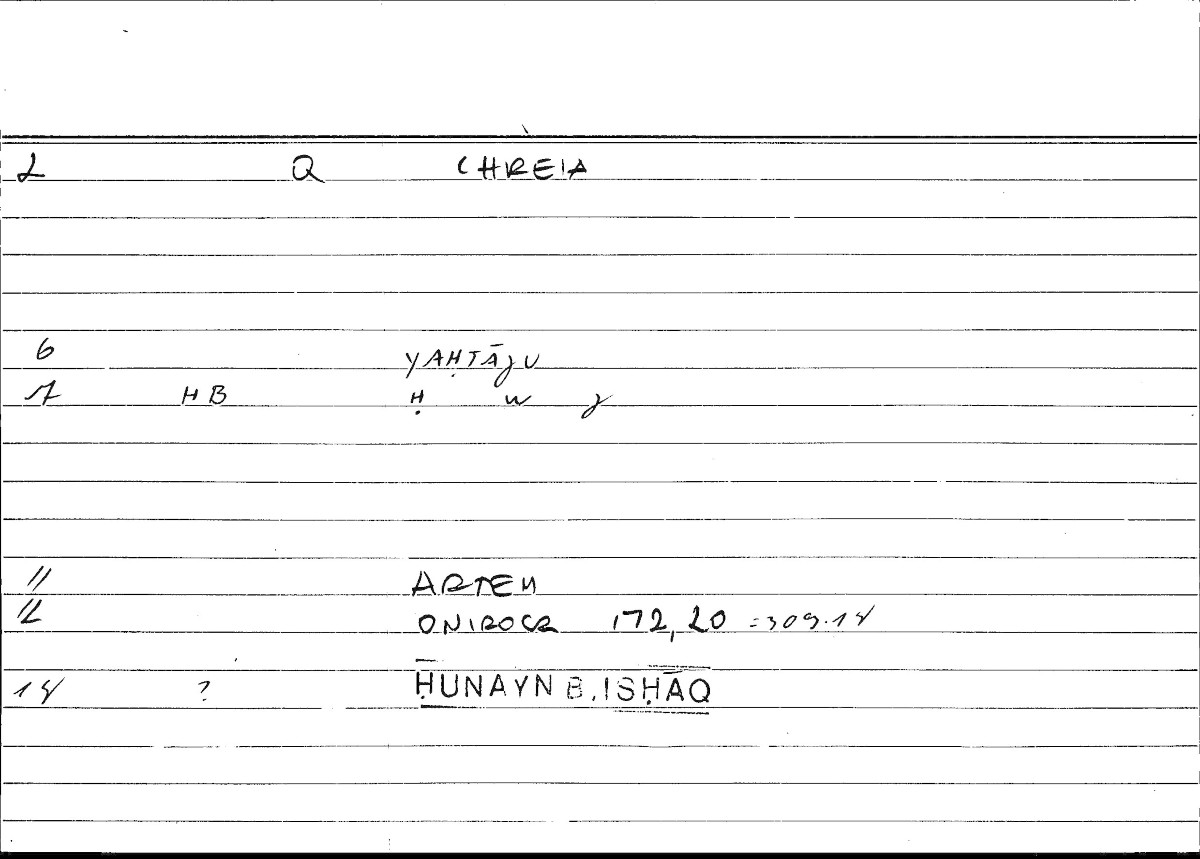 2 Q CHREIA
6 YAḤTĀJU
7 HB Ḥ w j
11 ARTEM
12 ONIROCR 172,20 =309.14
14 ? ḤUNAYN B. ISḤĀQ